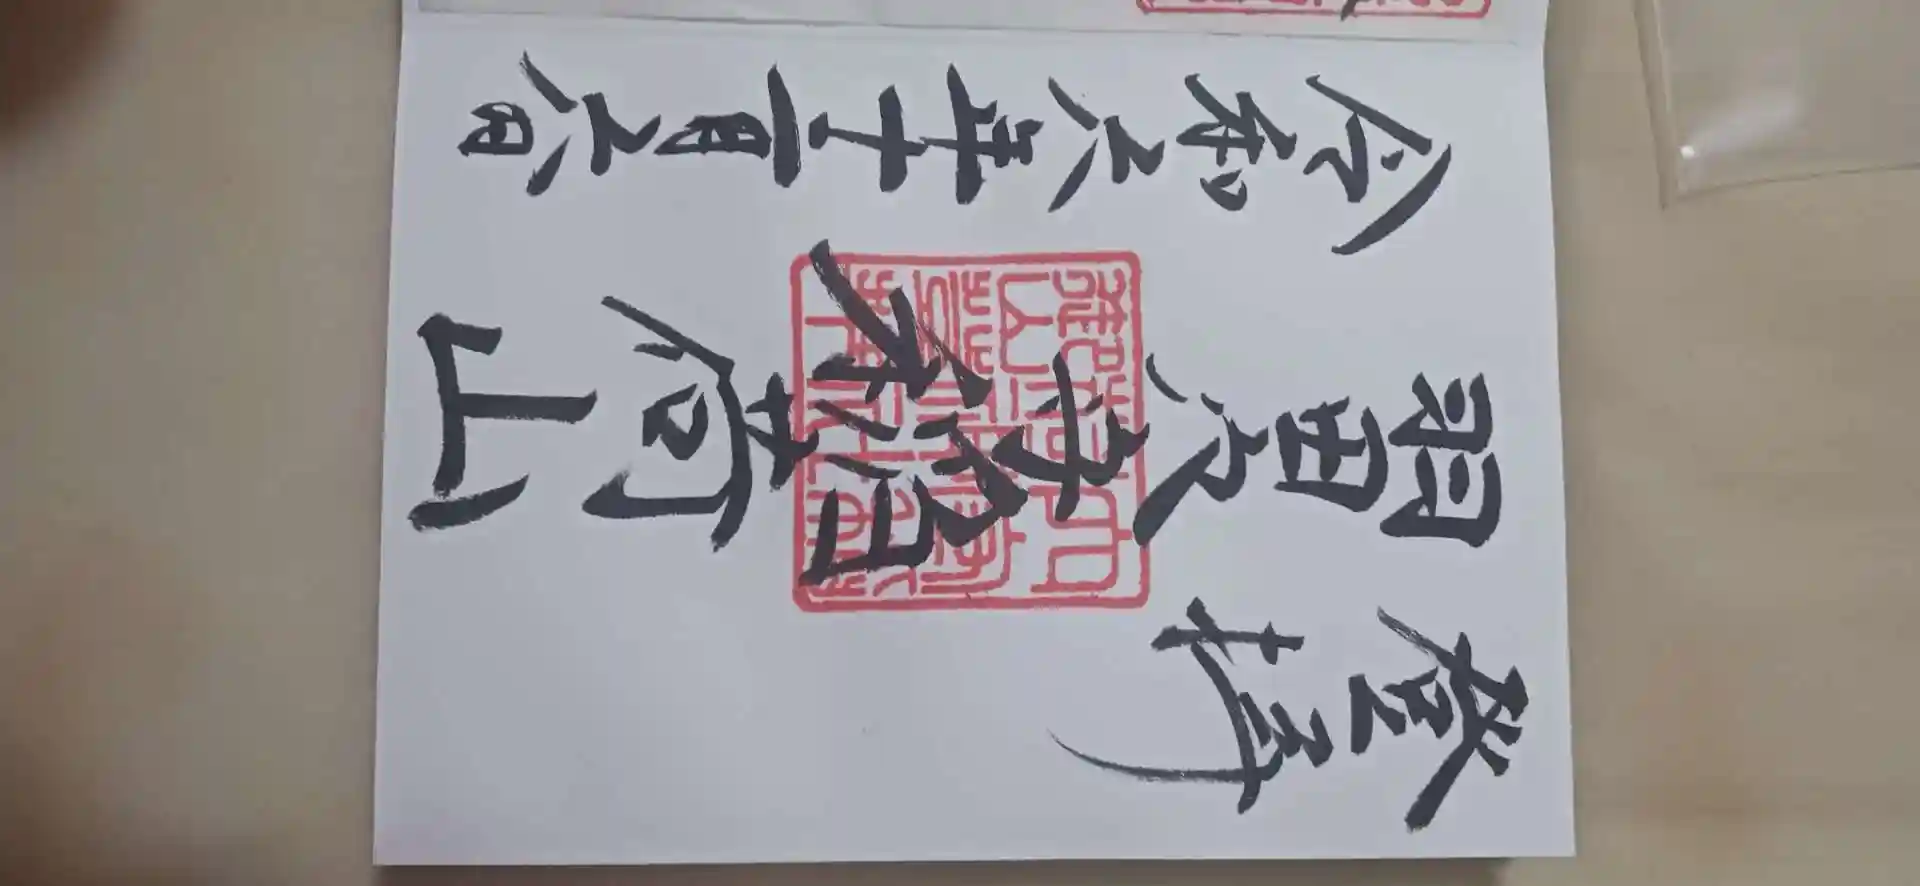 登拝
羽田穴守稲荷山
令和六年十一月六日